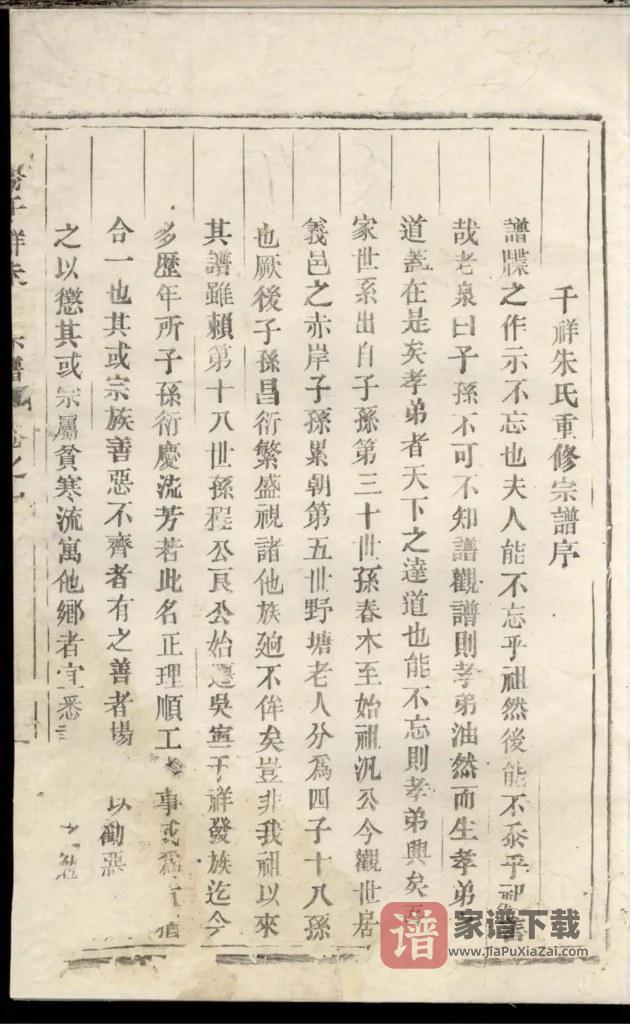 千祥朱氏重修宗譜序
譜牒之作示不忘也夫人能不忘乎祖然後能不忝乎祖
哉老泉曰子孫不可不知譜觀譜則孝弟油然而生孝弟
道蓋在是矣孝弟者天下之達道也能不忘則孝弟興矣
家世系出自子孫第三十世孫春木至始祖汎公今觀世居
義邑之赤岸子孫累朝第五世野塘老人分爲四子十八孫
也厥後子孫昌衍繁盛視諸他族廻不侔矣豈非我祖以來
其譜雖賴第十八世孫程公良公始遷吳寧千祥發族迄今
多歷年所子孫衍慶流芳若此名正理順工事或爲
合一也其或宗族善惡不齊者有之善者場以勸惡
之以懲其或宗屬貧寒流寓他鄉者宜悉
千祥朱
宗譜
卷之一
谱
家谱下载
www.jiaPuXiaZai.com